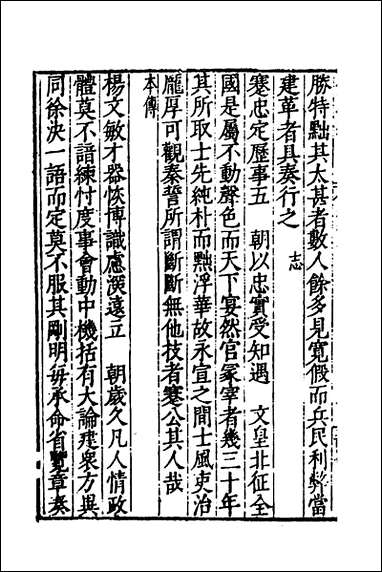 勝特黜其太甚者數人餘多見寬假而兵民利弊當
建革者具奏行之　志
蹇忠定歷事五　朝以忠實受知遇　文皇北征全
國是屬不動聲色而天下宴然官冢宰者幾三十年
其所取士先純朴而黜浮華故永宣之間士風吏治
龐厚可觀秦誓所謂斷斷無他技者蹇公其人哉
本傳
楊文敏才器恢博識慮深遠立　朝歲久凡人情政
體莫不諳練忖度事會動中機括有大論建衆方異
同徐決一語而定莫不服其剛明每承命省覽章奏